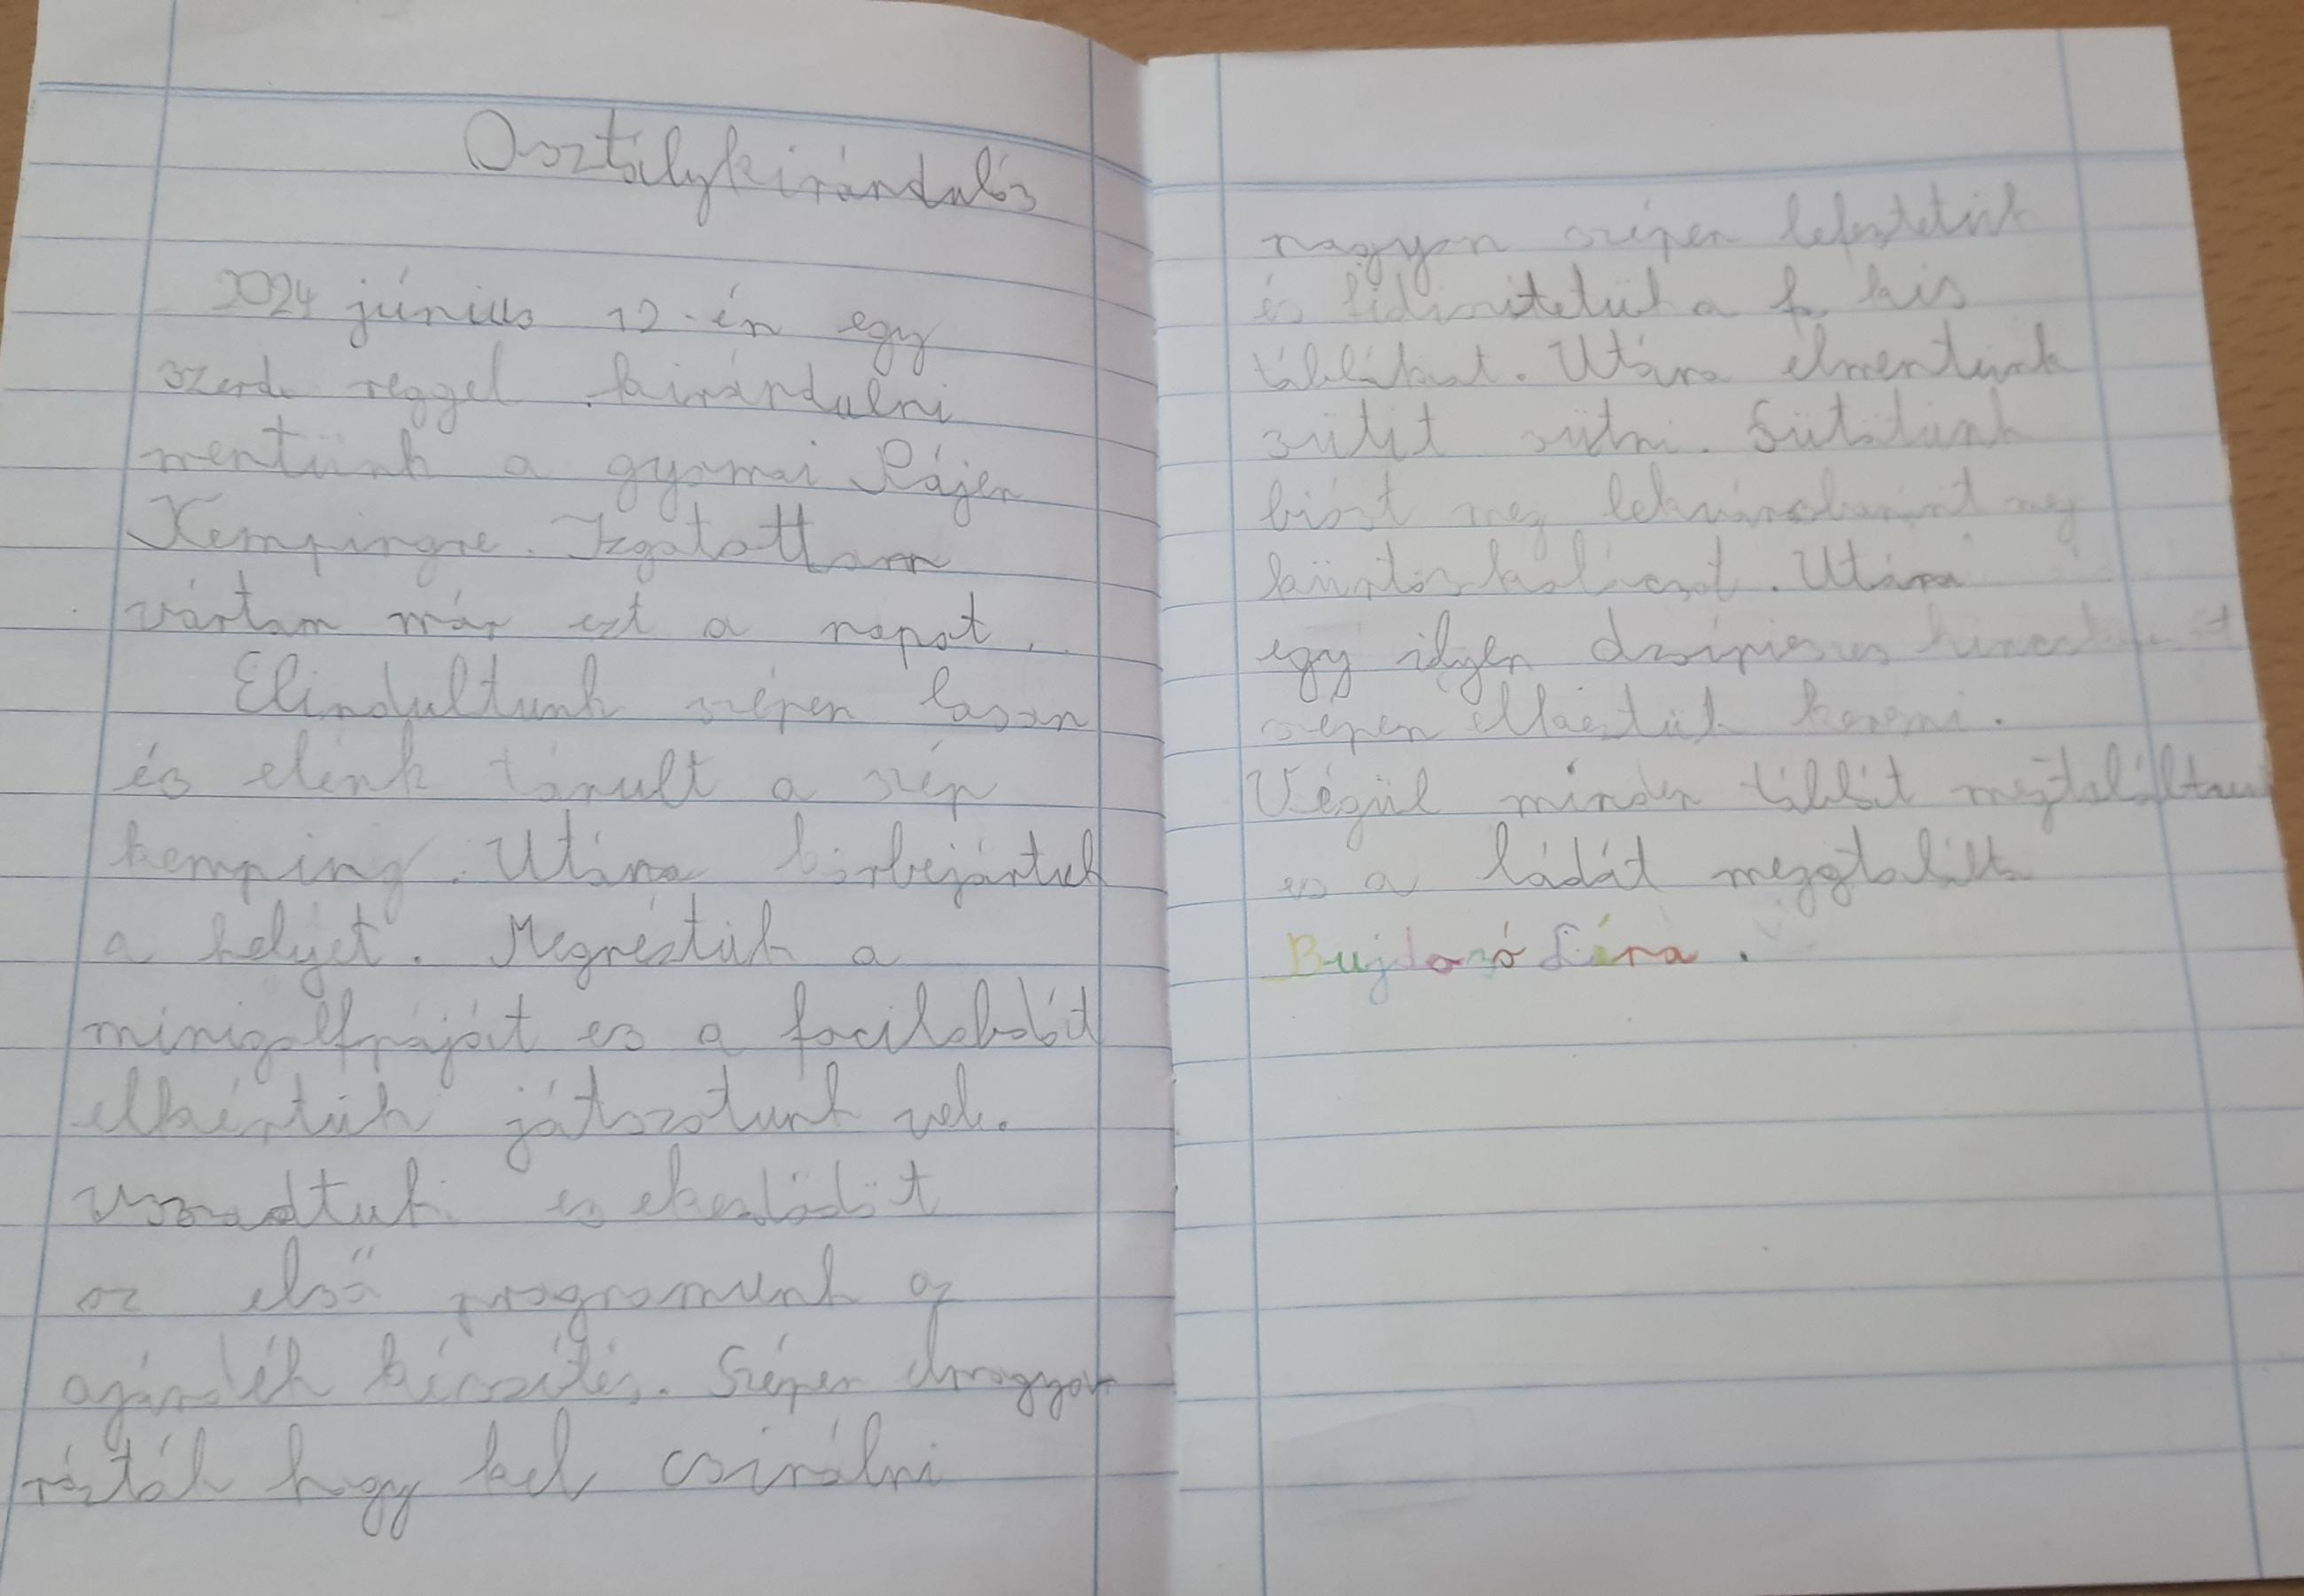 Osztálykirándulás
2024 június 12-én egy
szerda reggel kirándulni
mentünk a gyomai Pájer
Kempingre. Izgatottam
vártam már ezt a napot.
Elindultunk szépen lasan
és elénk tárult a szép
kemping. Utána körbejártuk
a helyet. Megnéztük a
minigolfpáját es a focilabdát
elkértük játszotunk vele.
es elkezdödöt
az elsö programunk az
ajándék készítés. Szépen elmagya
rázták hogy kel csinálni
nagyon szépen lefestetük
és a kis
táblákat. Utána elmentünk
sütit sütni. Sütötünk
meg meg
kürtöskalácsot. Utána
egy ilyen
szépen elkeztük keresni.
Végül minden táblát megtaláltunk
es a ládát megtalálta
Bujdosó Léna.